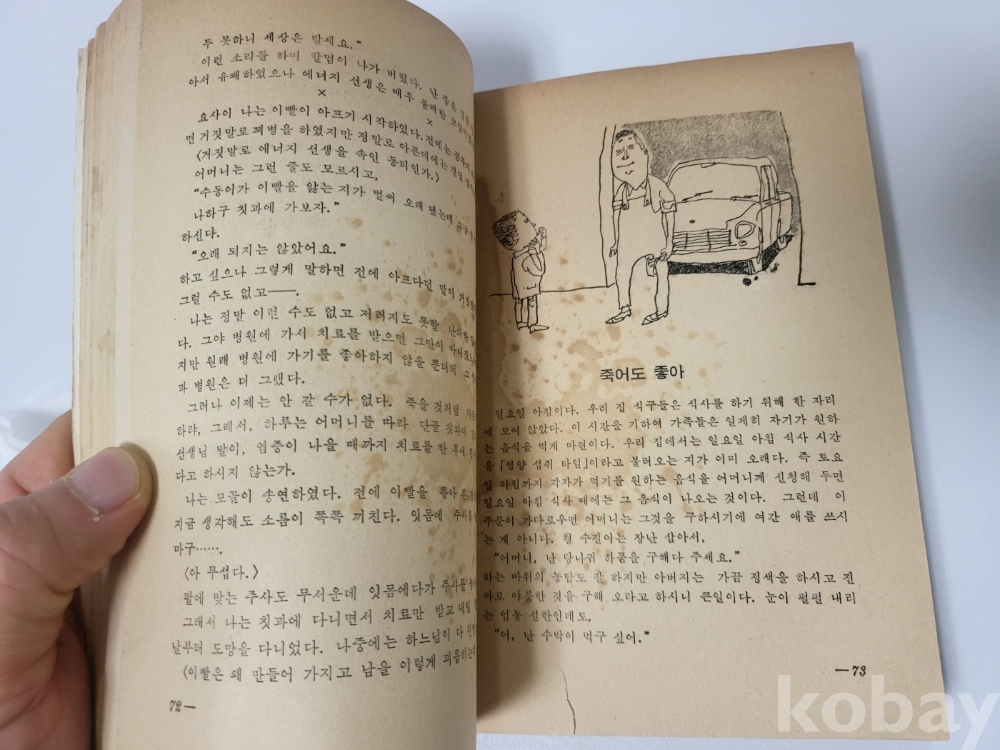 두 못하니 세상은 말세요."
이런 소리를 하며 할멈이 나가 버렸다. 난 좋은
아서 유쾌하였으나 에너지 선생은 매우 불쾌한
× ×
요사이 나는 이빨이 아프기 시작하였다. 전에는
면 거짓말로 꾀병을 하였지만 정말로 아픈데에는
〈거짓말로 에너지 선생을 속인 동티인가.〉
어머니는 그런 줄도 모르시고,
"수동이가 이빨을 앓는 지가 벌써 오래 됐는데
나하구 칫과에 가보자."
하신다.
"오래 되지는 않았어요."
하고 싶으나 그렇게 말하면 전에 아프다던 말이
그럴 수도 없고――.
나는 정말 이런 수도 없고 저러지도 못할
다. 그야 병원에 가서 치료를 받으면 그만이
지만 원래 병원에 가기를 좋아하지 않을 뿐더러
과 병원은 더 그랬다.
그러나 이제는 안 갈 수가 없다. 죽을 것처럼
하랴, 그래서, 하루는 어머니를 따라 단골 칫과에
선생님 말이, 염증이 나을 때까지 치료를 한 후에
다고 하시지 않는가.
나는 모골이 송연하였다. 전에 이빨을 뽑아
지금 생각해도 소름이 쪽쪽 끼친다. 잇몸에 주사를
마구…….
〈아 무섭다.〉
팔에 맞는 주사도 무서운데 잇몸에다가 주사를
그래서 나는 칫과에 다니면서 치료만 받고 내일
날부터 도망을 다니었다. 나중에는 하느님이 다
〈이빨은 왜 만들어 가지고 남을 이렇게 괴롭히는
72―
죽어도 좋아
일요일 아침이다. 우리 집 식구들은 식사를 하기 위해 한 자리
에 모여 앉았다. 이 시간을 기하여 가족들은 일제히 자기가 원하
는 음식을 먹게 마련이다. 우리 집에서는 일요일 아침 식사 시간
을 「영양 섭취 타임」이라고 불러오는 지가 이미 오래다. 즉 토요
일 아침까지 각자가 먹기를 원하는 음식을 어머니께 신청해 두면
일요일 아침 식사 때에는 그 음식이 나오는 것이다. 그런데 이
주문이 까다로우면 어머니는 그것을 구하시기에 여간 애를 쓰시
는 게 아니다. 형 수길이는 장난 삼아서,
"어머니, 난 당나귀 하품을 구해다 주세요."
하는 따위의 농담도 잘 하지만 아버지는 가끔 정색을 하시고 진
짜로 야릇한 것을 구해 오라고 하시니 큰일이다. 눈이 펄펄 내리
는 엄동 설한인데도,
"어, 난 수박이 먹구 싶어."
―73
kobay